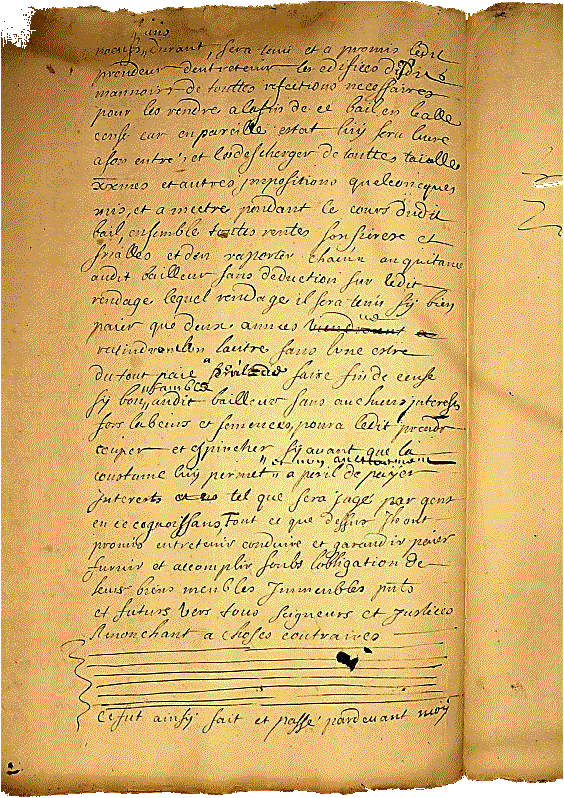 durant, sera tenu et a promis ledit
prendeur dentretenir les edifices
mannoirs de touttes refections necessaires
pour les rendre a la fin de ce bail en
cense car en pareille estat luy sera livré
a son entré, et les descherger de touttes tailles
xxmes et autres impositions quelconcques
mis, et a mectre pendant le cours dudit
bail ensemble touttes rentes fonsieres et
et den raporter chacun an quitance
audit bailleur sans deduction sur ledit
rendage lequel rendage il sera tenu sy bien
paier que deux annees
lautre sans lune estre
du tout paié faire fin de cense
sy bon semble audit bailleur sans aucluns interests
fors labeurs et semences, poura ledit prendr
couper et espincher sy avant que la
coustume luy permet a peril de paier
interests tel que sera jugé par gens
en ce cognoissans, Tout ce que dessur Ils ont
promis entretenir conduire et garandir paier
furnir et accomplir soubs lobligation de
leurs biens meubles Immeubles pnts
et futurs vers tous seigneurs et justices
Renonchant a choses contraires
Ce fut ainsy fait et passé pardevant moy